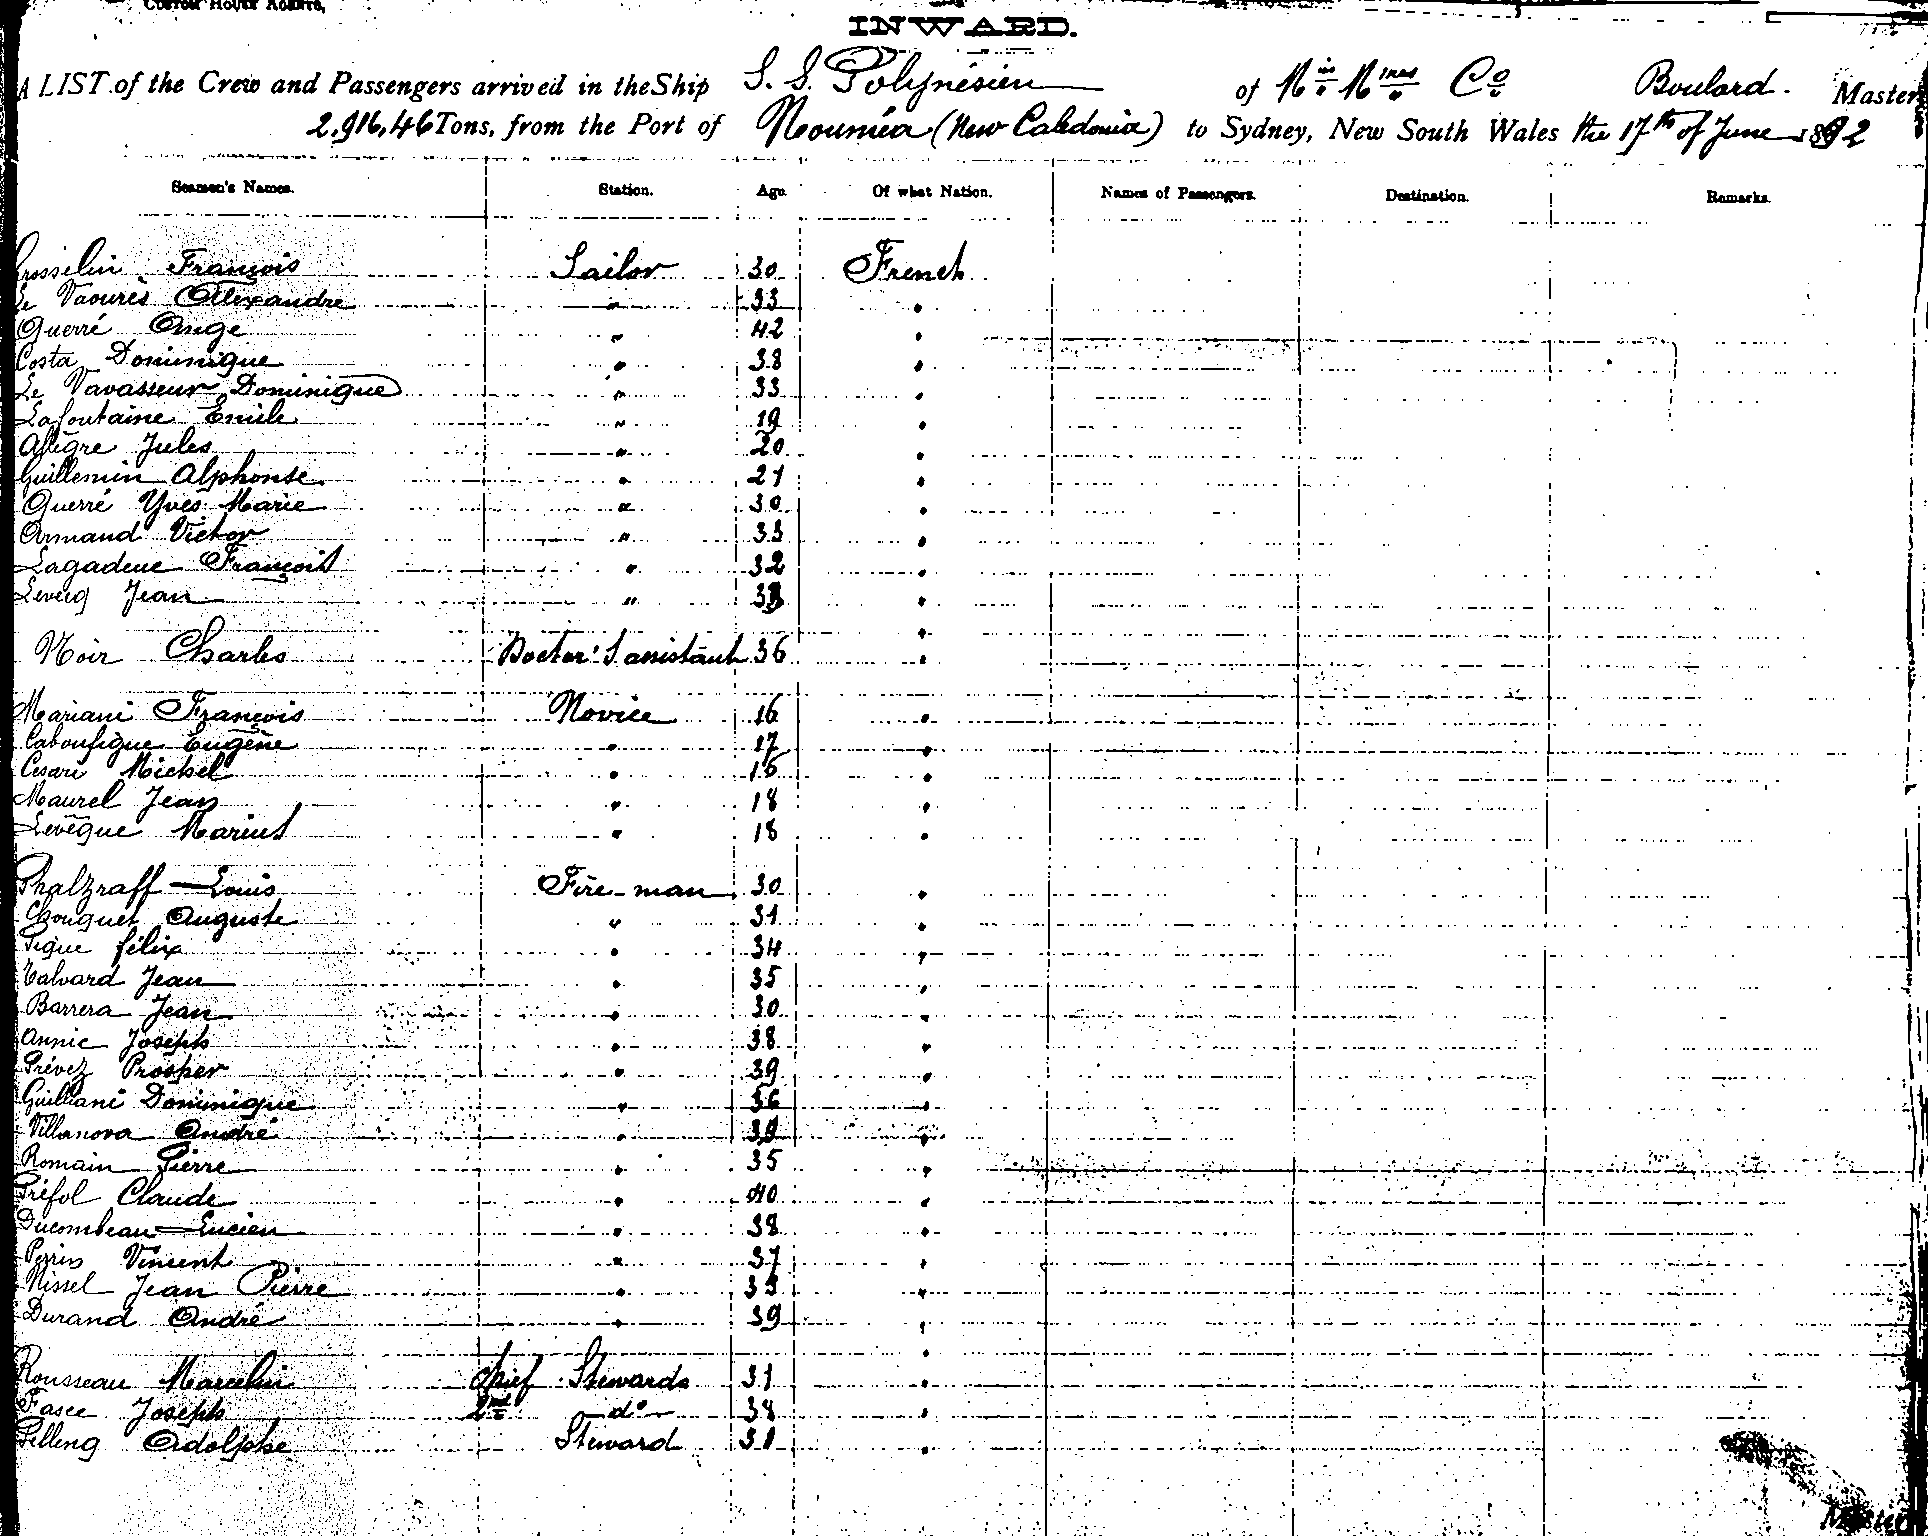 CUSTOM HOUSE AGENTS,
INWARD.
A LIST of the Crew and Passengers arrived in the Ship S. S. Polynésien of Mies Mmes Co Boulard. Master
2,916,46 Tons, from the Port of Nouméa (New Caledonia) to Sydney, New South Wales the 17th of June 1892
Seamen's Names. Station. Age. Of what Nation. Names of Passengers. Destination. Remarks.
Grosselin François Sailor 30 French
Le Vaourès Alexandre " 33 "
Querré Ange " 42 "
Costa Dominique " 38 "
Le Vavasseur Dominique " 33 "
Lafontaine Emile " 19 "
Alègre Jules " 20 "
Guillemin Alphonse " 21 "
Querré Yves Marie " 30 "
Armand Victor " 33 "
Lagadeuc François " 32 "
Levecq Jean "
Noir Charles Doctor's assistant 36 "
Mariani François Novice 16 "
Caboufigue Eugène " 17 "
Cesari Michel " 16 "
Maurel Jean " 18 "
Levêque Marius " 18 "
Phalzraff Louis Fire-man 30 "
Chouquet Auguste " 31 "
Pique félix " 34 "
Valvard Jean " 35 "
Barrera Jean " 30 "
Annic Joseph " 38 "
Prévez Prosper " 39 "
Guilliani Dominique " 36 "
Villanova André " 39 "
Romain Pierre " 35 "
Préfol Claude " 40 "
Ducombeau Lucien " 38 "
Perrin Vincent " 37 "
Nissel Jean Pierre " 33 "
Durand André " 39 "
Rousseau Marcelin chief Stewards 31 "
Fasce Joseph 2nd do 38 "
Pelleng Adolphe Steward 31 "
Master